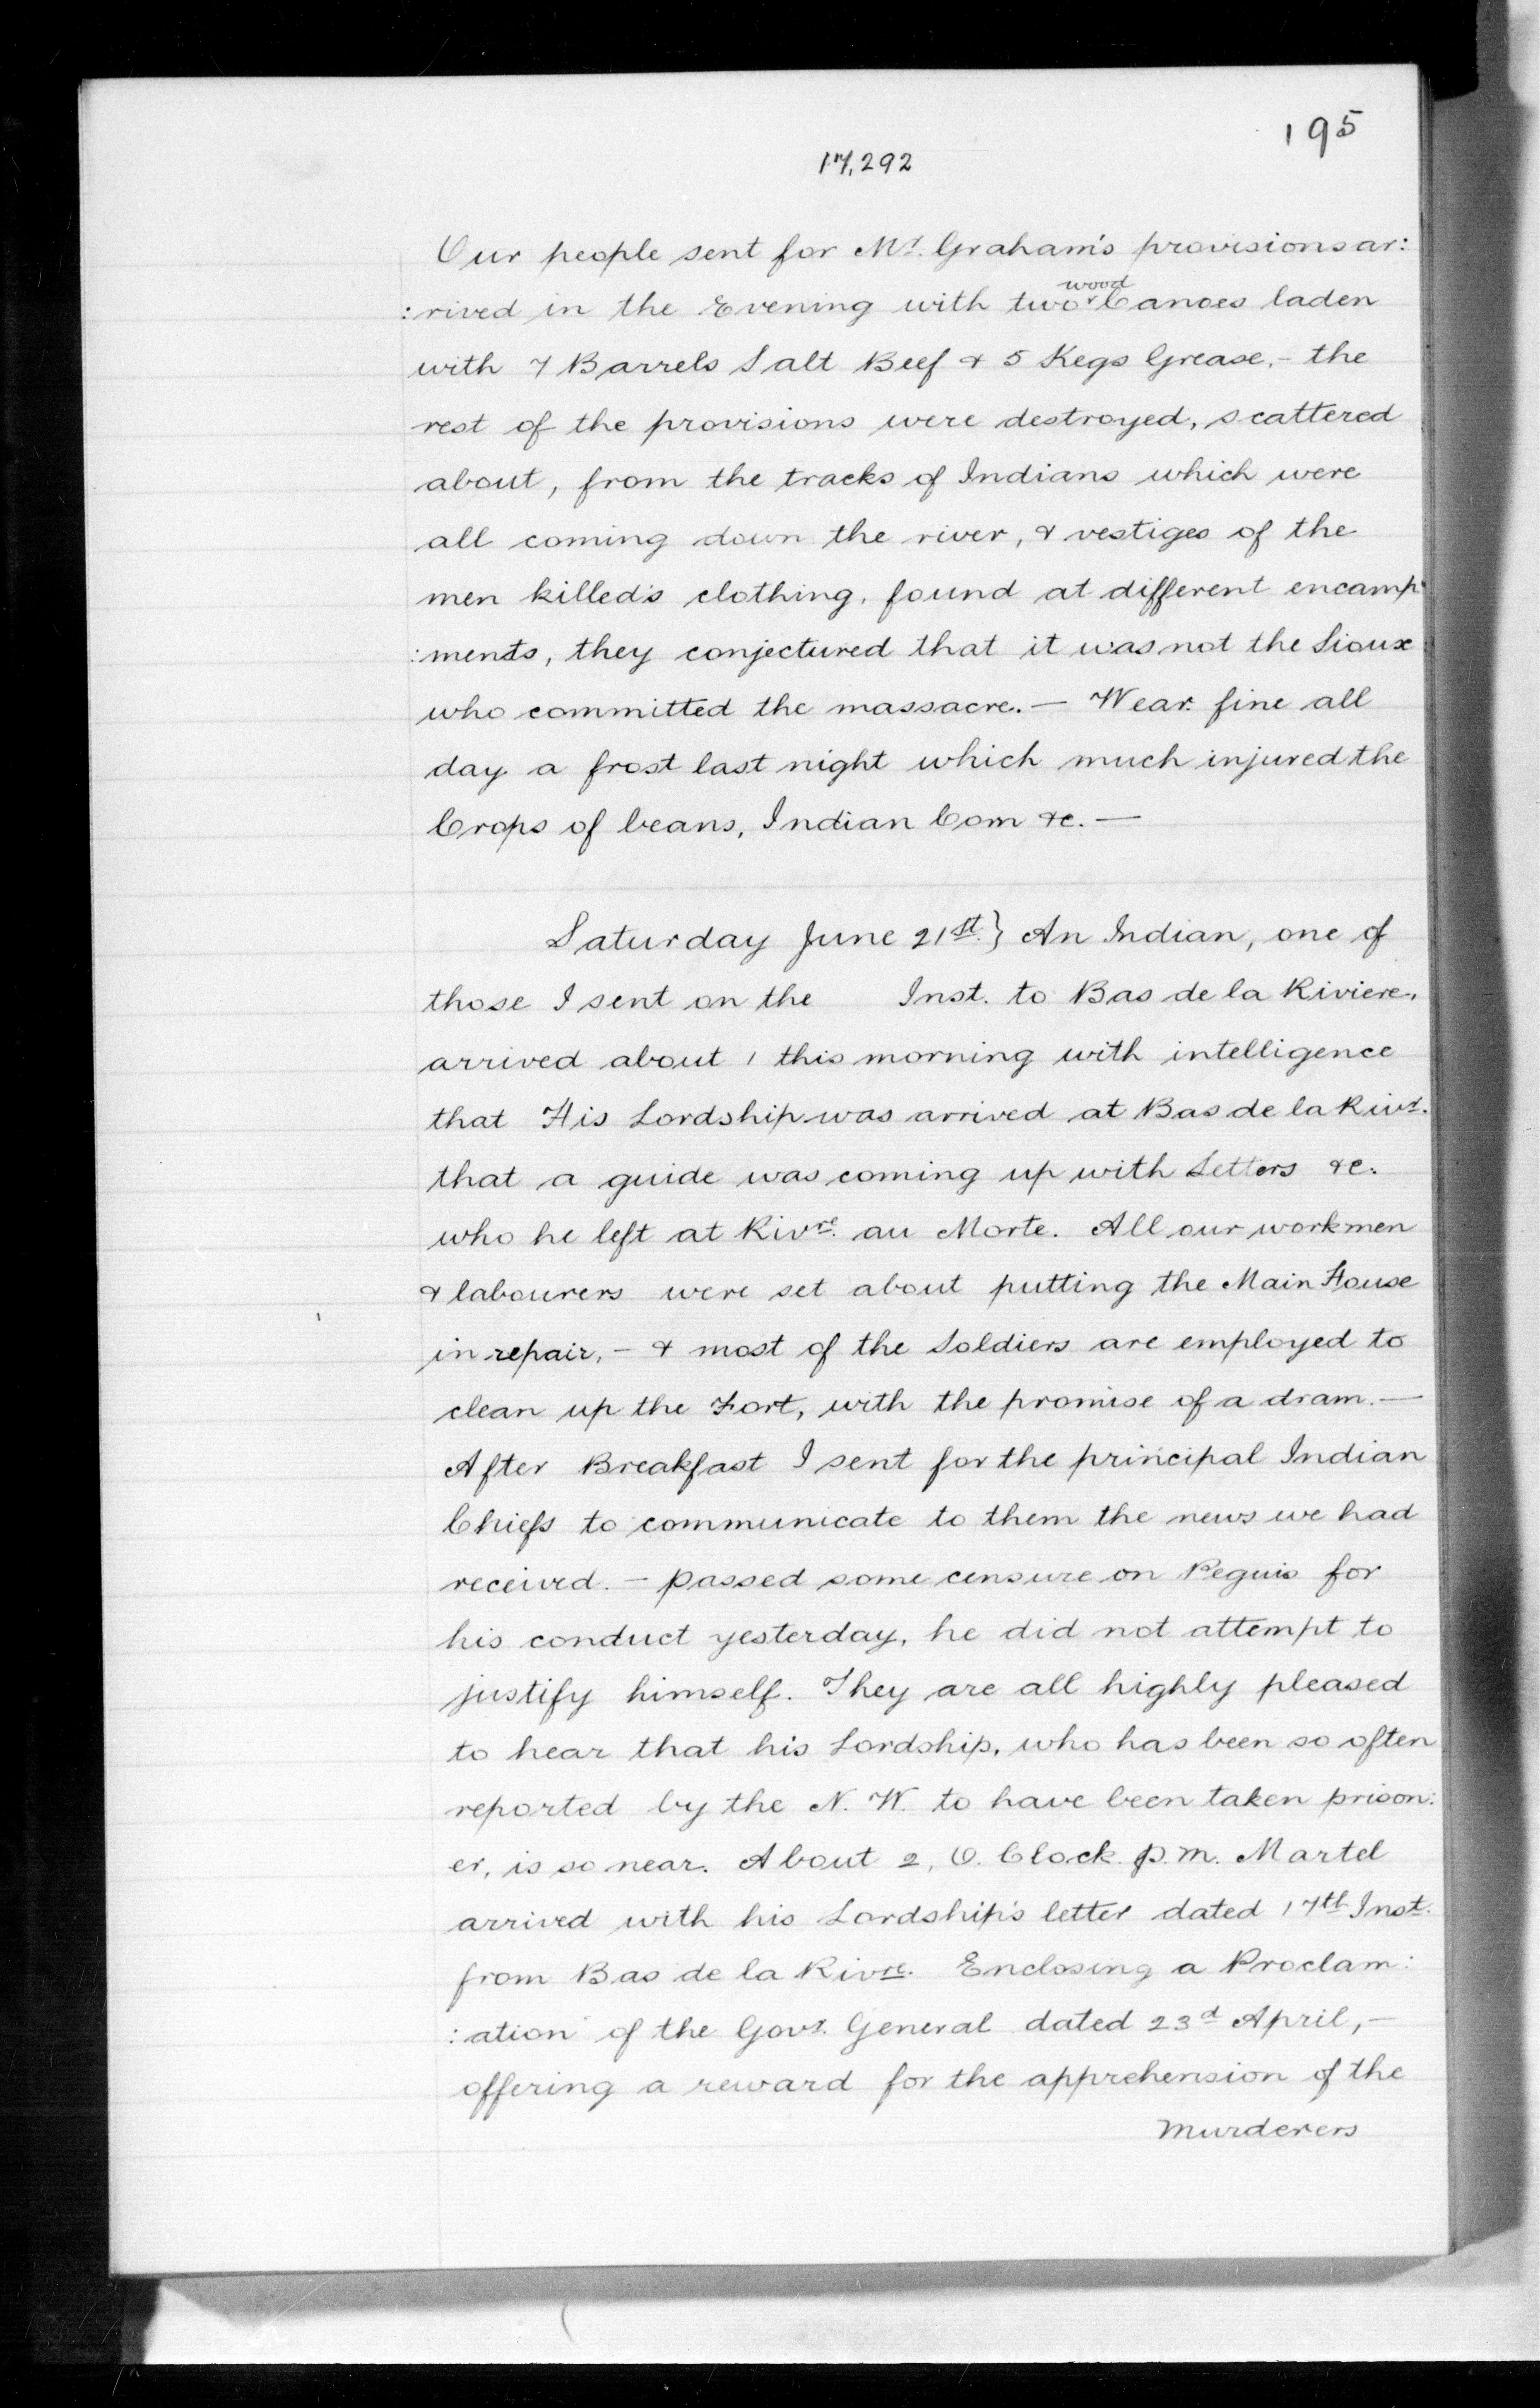 195
17,292
Our people sent for Mr. Graham's provisions ar:
:rived in the Evening with two wood Canoes laden
with 7 Barrels Salt Beef & 5 Kegs Grease, - the
rest of the provisions were destroyed, scattered
about, from the tracks of Indians which were
all coming down the river, & vestiges of the
men killed's clothing, found at different encamp:
:ments, they conjectured that it was not the Sioux
who committed the massacre. — Wear. fine all
day a frost last night which much injured the
Crops of beans, Indian Corn &c. —
Saturday June 21st.} An Indian, one of
those I sent on the Inst. to Bas de la Riviere,
arrived about 1 this morning with intelligence
that His Lordship was arrived at Bas de la Rivr.
that a guide was coming up with Letters &c.
who he left at Rivre. au Morte. All our workmen
& labourers were set about putting the Main House
in repair, - & most of the Soldiers are employed to
clean up the Fort, with the promise of a dram. —
After Breakfast I sent for the principal Indian
Chiefs to communicate to them the news we had
received. - passed some censure on Peguis for
his conduct yesterday, he did not attempt to
justify himself. They are all highly pleased
to hear that his Lordship, who has been so often
reported by the N. W. to have been taken prison:
er, is so near. About 2, O. Clock. p.m. Martel
arrived with his Lordship's letter dated 17th Inst.
from Bas de la Rivre. Enclosing a Proclam:
:ation of the Govr. General dated 23d April, -
offering a reward for the apprehension of the
Murderers